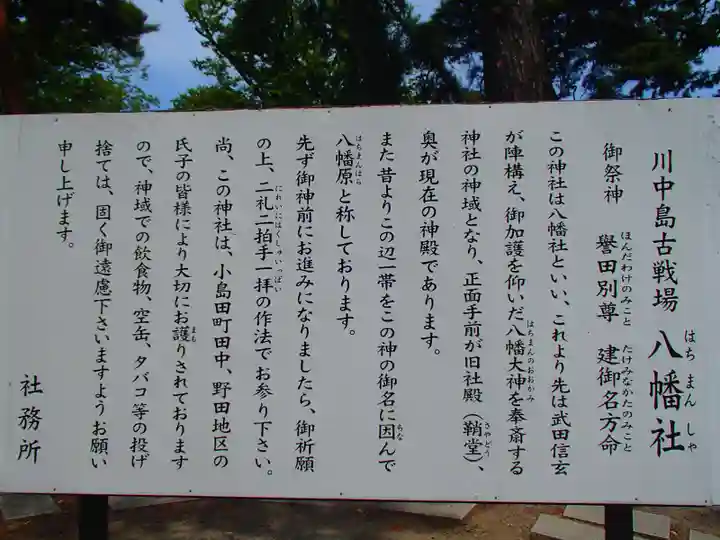 川中島古戦場 八幡社
はちまんしゃ
御祭神 誉田別尊 建御名方命
ほんだわけのみこと たけみなかたのみこと
この神社は八幡社といい、これより先は武田信玄
が陣構え、御加護を仰いだ八幡大神を奉斎する
はちまんのおおかみ
神社の神域となり、正面手前が旧社殿（鞘堂）、
さやどう
奥が現在の神殿であります。
また昔よりこの辺一帯をこの神の御名に因んで
ちな
八幡原と称しております。
はちまんはら
先ず御神前にお進みになりましたら、御祈願
の上、二礼二拍手一拝の作法でお参り下さい。
にれいにはくしゅいっぱい
尚、この神社は、小島田町田中、野田地区の
氏子の皆様により大切にお護りされております
まも
ので、神域での飲食物、空缶、タバコ等の投げ
捨ては、固く御遠慮下さいますようお願い
申し上げます。
社務所